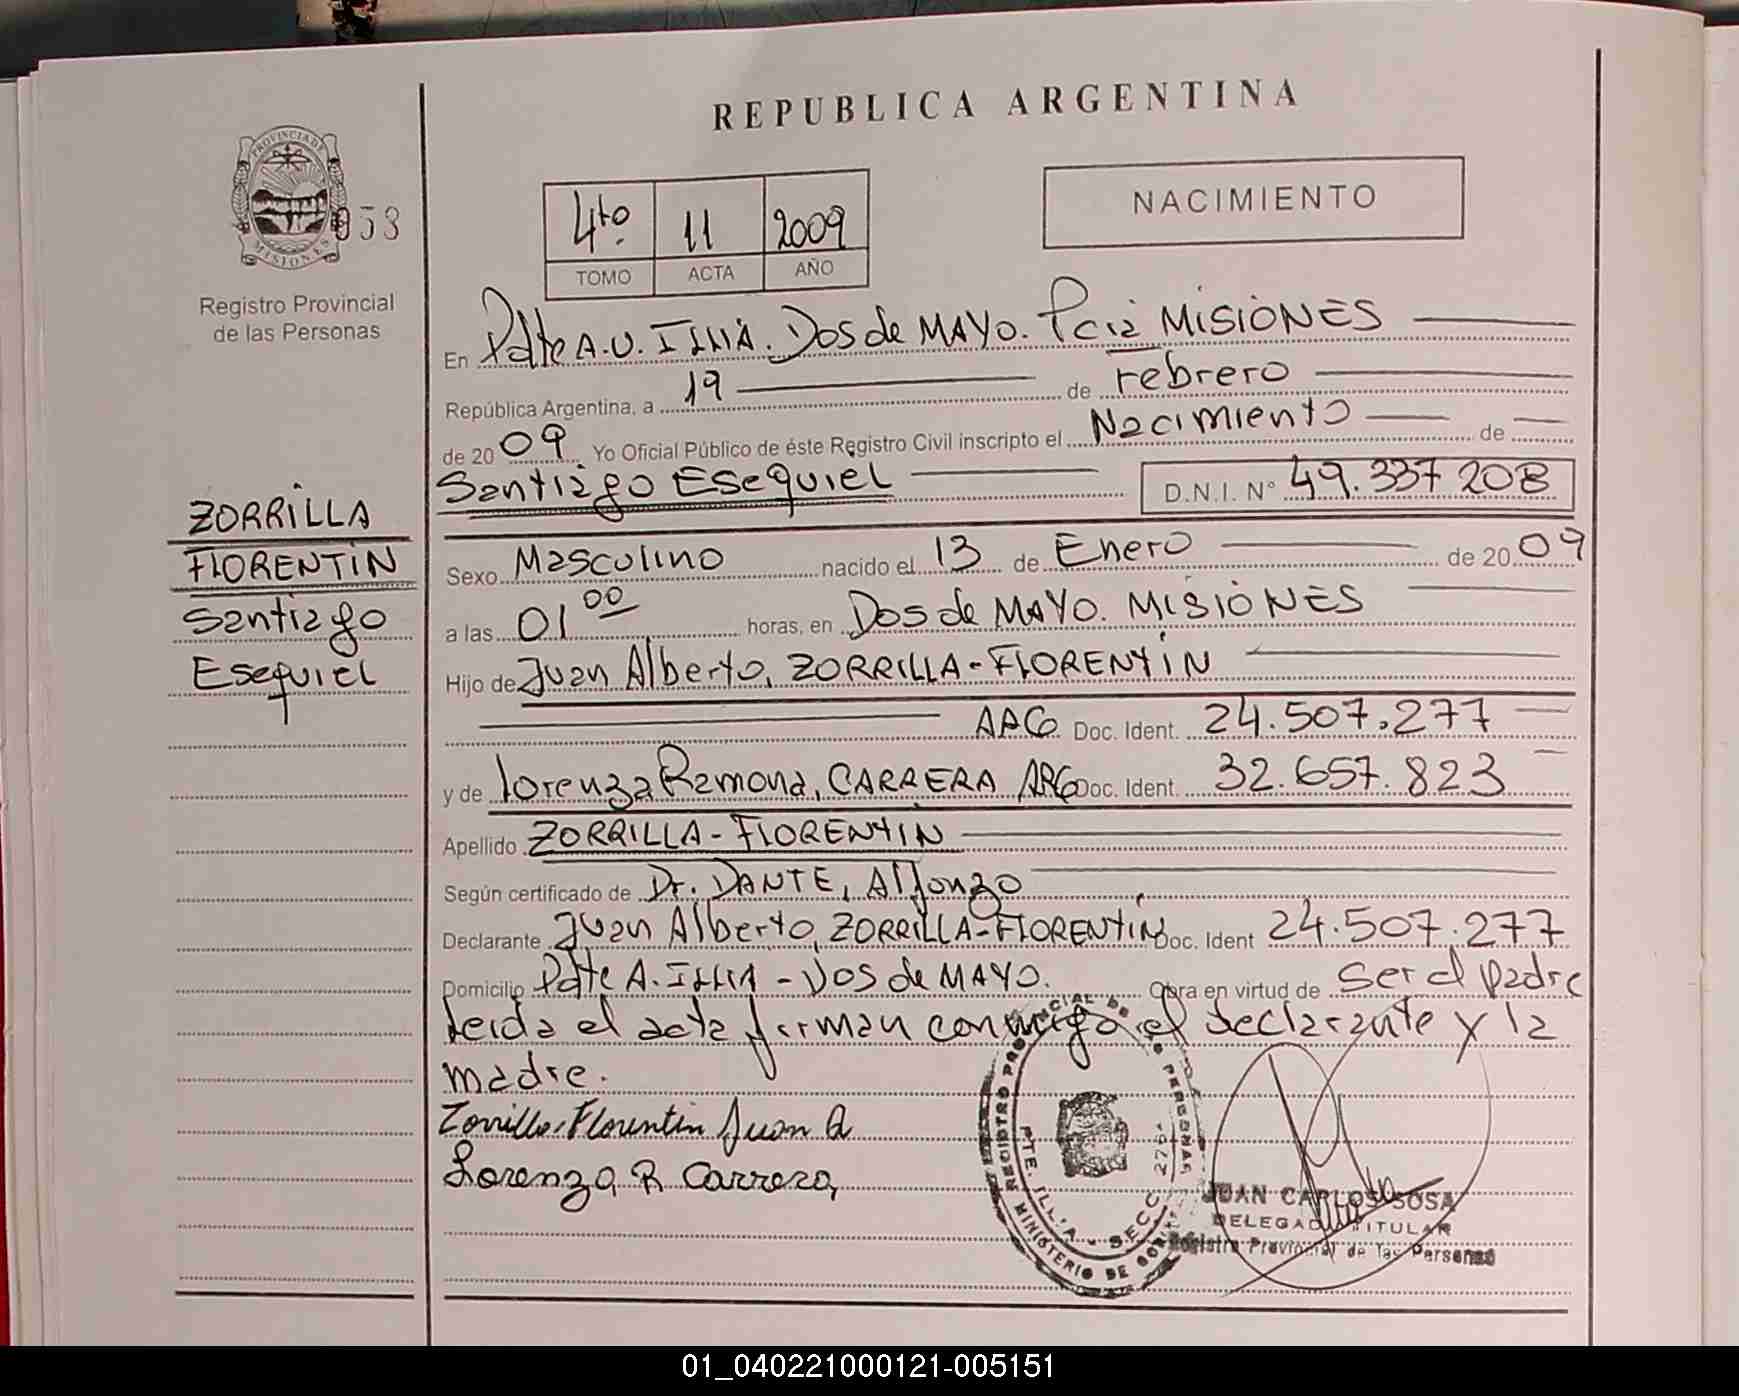 REPUBLICA ARGENTINA
PROVINCIA DE
MISIONES
053
Registro Provincial
de las Personas
4to. 11 2009
TOMO ACTA AÑO
NACIMIENTO
En Pdte A.U. ILLIA. Dos de MAYO. Pcia MISIONES
República Argentina, a 19 de Febrero
de 2009 Yo Oficial Público de éste Registro Civil inscripto el Nacimiento de
Santiago Esequiel D.N.I. N° 49.337 208
ZORRILLA
FLORENTIN
Santiago
Esequiel
Sexo Masculino nacido el 13 de Enero de 2009
a las 01 00 horas, en Dos de MAYO. MISIONES
Hijo de Juan Alberto, ZORRILLA-FLORENTIN
ARG Doc. Ident. 24.507.277
y de Lorenza Ramona, CARRERA ARG Doc. Ident. 32.657.823
Apellido ZORRILLA-FLORENTIN
Según certificado de Dr. DANTE, Alfonzo
Declarante Juan Alberto, ZORRILLA-FLORENTIN Doc. Ident 24.507.277
Domicilio Pdte A. ILLIA - Dos de MAYO. Obra en virtud de ser el padre
leida el acta firman conmigo el declarante y la
madre.
Zorrilla-Florentin Juan A
Lorenza R Carrera
REGISTRO PROVINCIAL DE LAS PERSONAS
PTE. ILLIA - SECC.
MINISTERIO DE GOB
JUAN CARLOS SOSA
DELEGADO TITULAR
Registro Provincial de las Personas
01_040221000121-005151